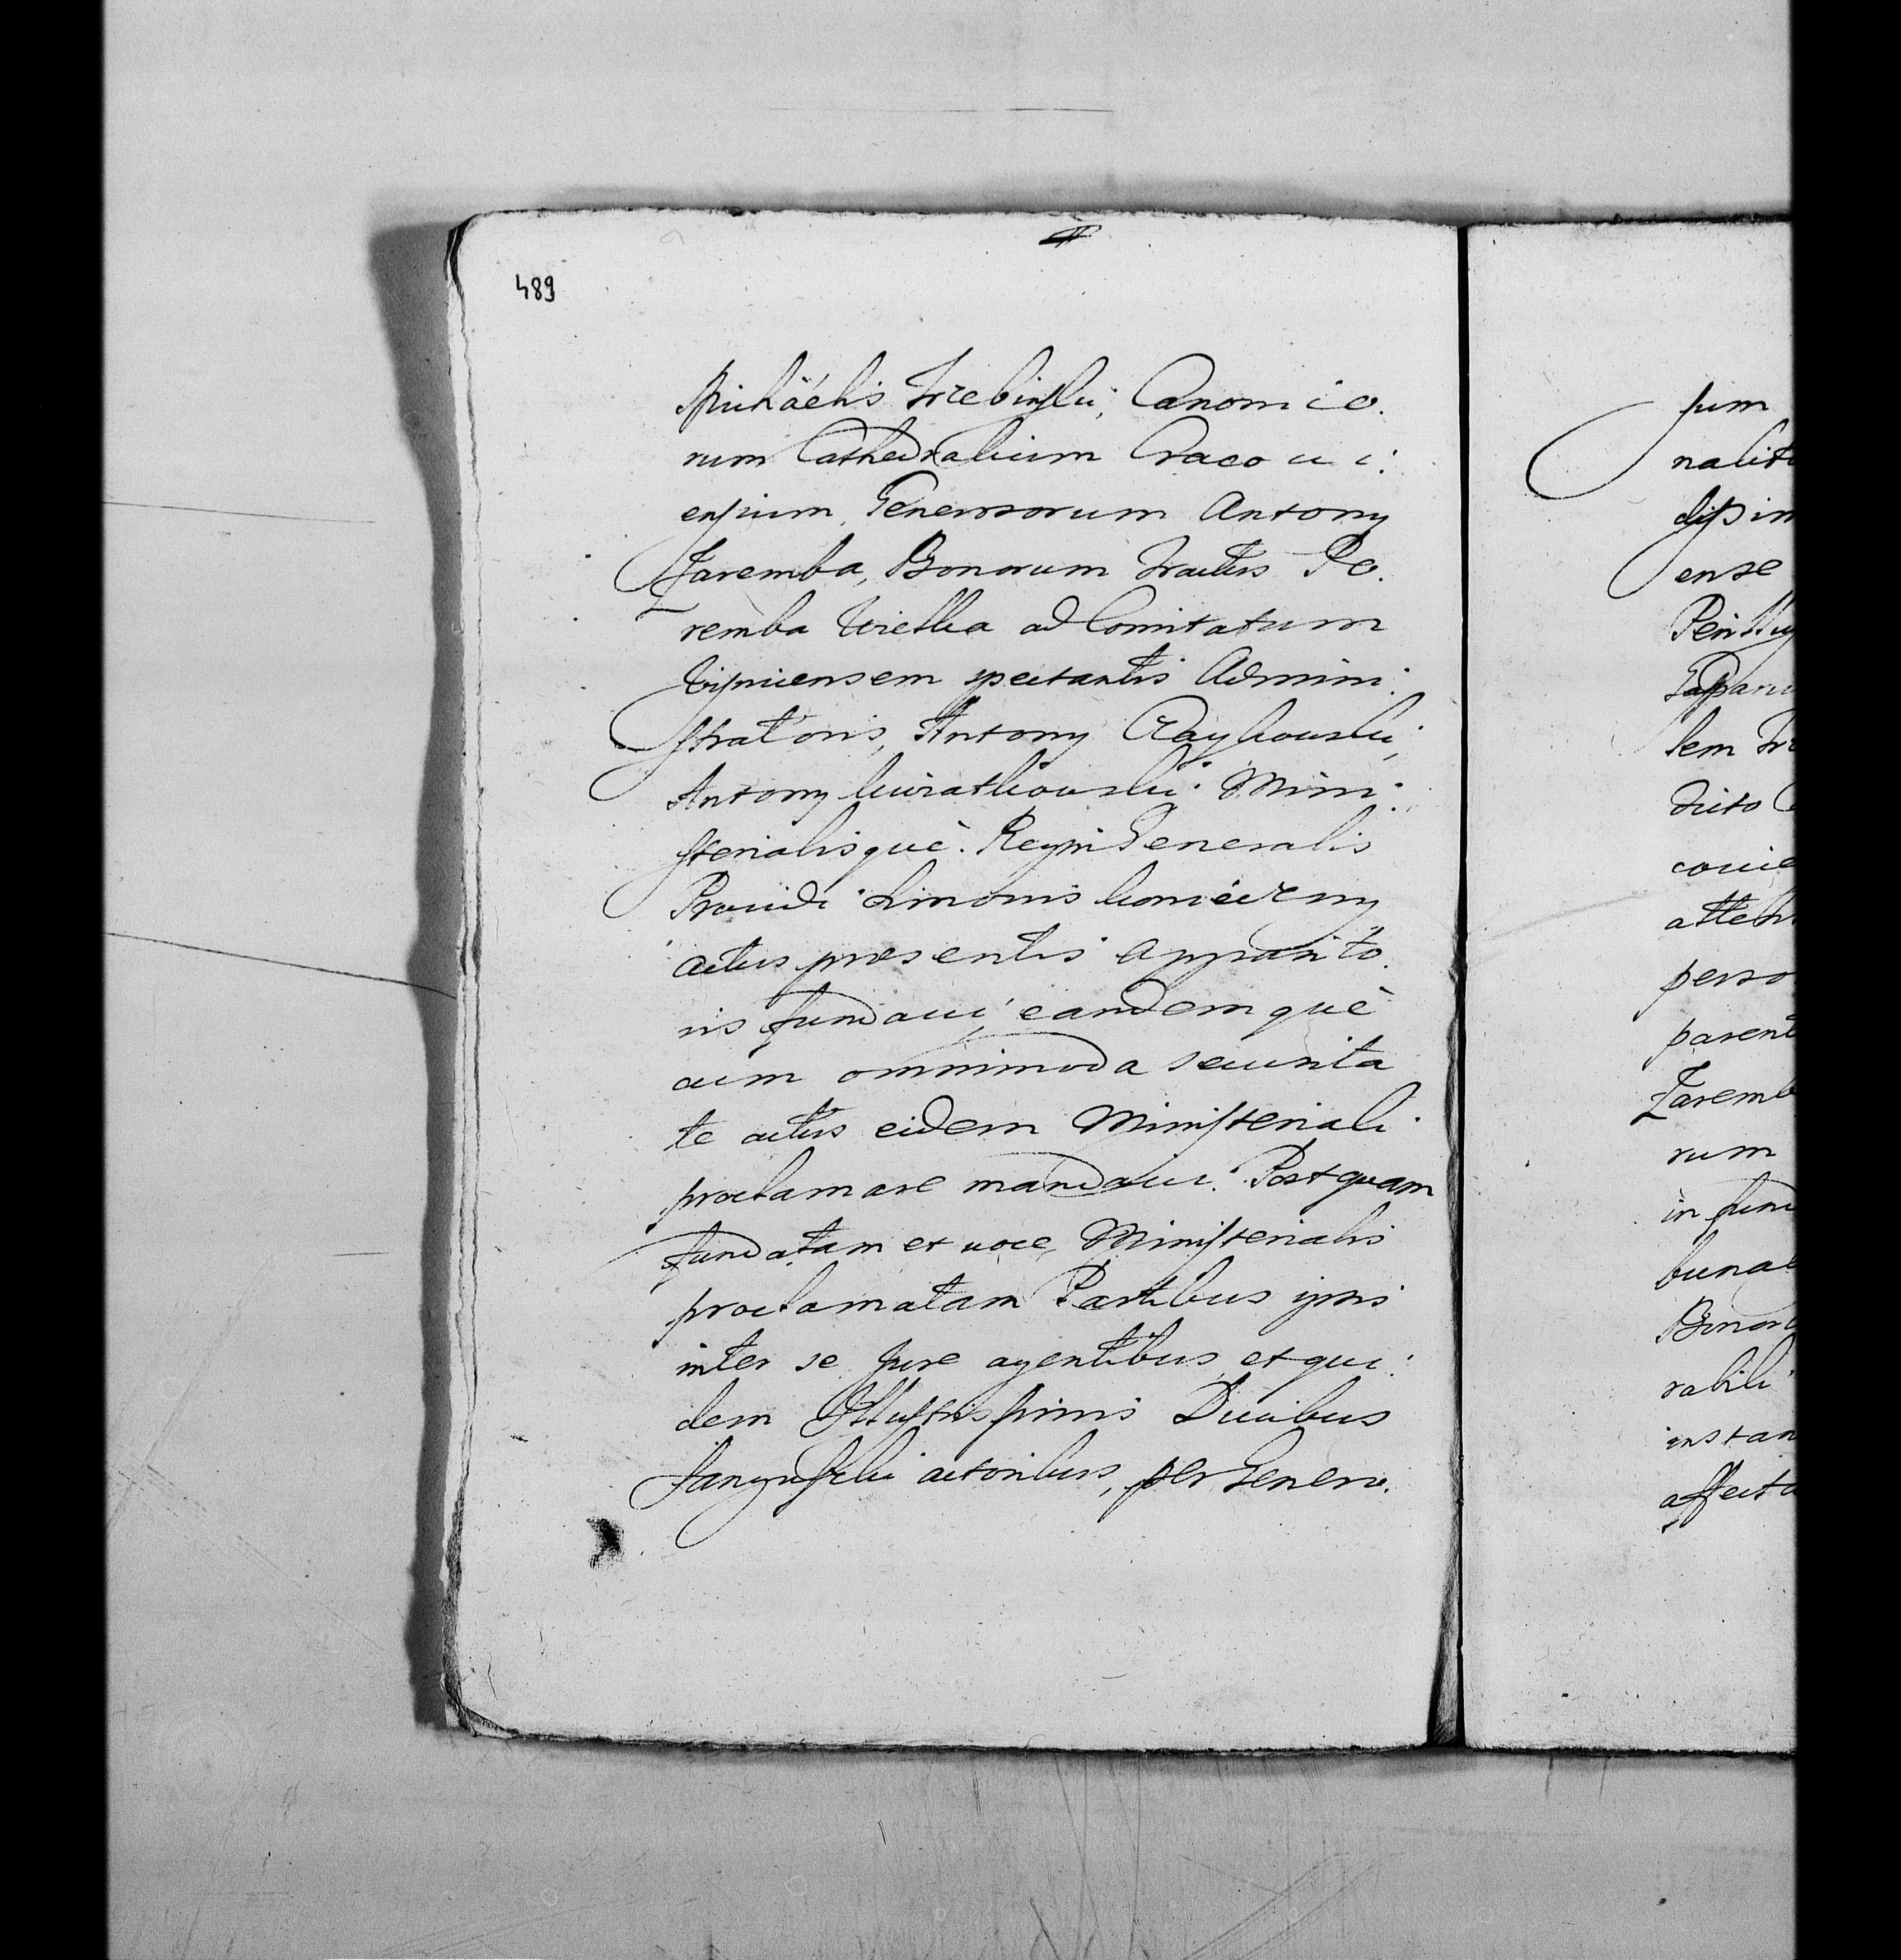 489
Michäelis Trebinski, Canonico.
rum Cathedralium Cracoui:
ensium, Generosorum Antony
Zaremba, Bonorum tractus Po.
remba Wielka ad Comitatum
Vipniensem spectantis Admini:
stratoris, Antony Raykowski,
Antony Kwiatkowski Mini:
sterialisquè Regni Generalis
Prouidi Simonis
actus presentis apparito.
ris fundaui, eandemquè
cum omnimoda securita
te actus eidem Ministeriali
proclamare mandaui. Postquam
fundatam et uoce Ministerialis
proclamatam Partibus ipsis
inter se Jure agentibus et qui:
dem Illustrissimis Ducibus
Sanguszki actoribus, per Genero.
sum
nalit
dissim
ense

Gaspar
lem Tr
dicto C
couie
attent
perso
parent
Zaremb
rum
in fund
bunal
Bonor
rabili
instan
affecta